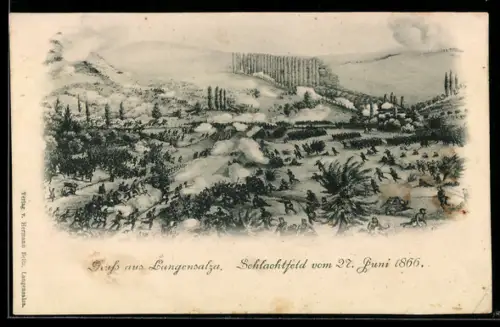 Gruß aus Langensalza, Schlachtfeld vom 27. Juni 1866.
Verlag v. Hermann Langensalza.